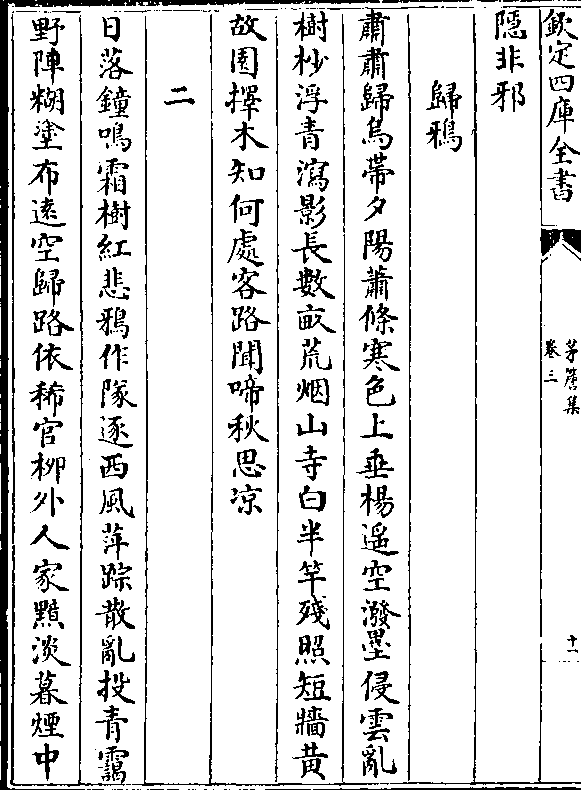 欽定四庫全書
茅簷集
卷三
十一
隱非邪
歸鴉
肅肅歸烏帶夕陽蕭條寒色上垂楊遥空潑墨侵雲亂
樹杪浮青瀉影長數畝荒烟山寺白半竿殘照短牆黄
故園擇木知何處客路聞啼秋思凉
二
日落鐘鳴霜樹紅悲鴉作隊逐西風萍踪散亂投青靄
野陣糊塗布遠空歸路依稀官柳外人家黯淡暮煙中